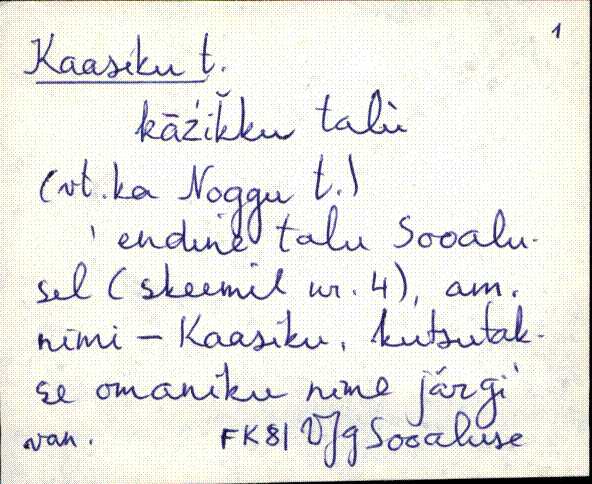 1
Kaasiku t.
kāźik̆ku talù
(vt. ka Noggu t.)
' endine talu Sooalu-
sel (skeemil nr. 4), am.
nimi – Kaasiku, kutsutak-
se omaniku nime järgi'
van. FK 81 VJg Sooaluse